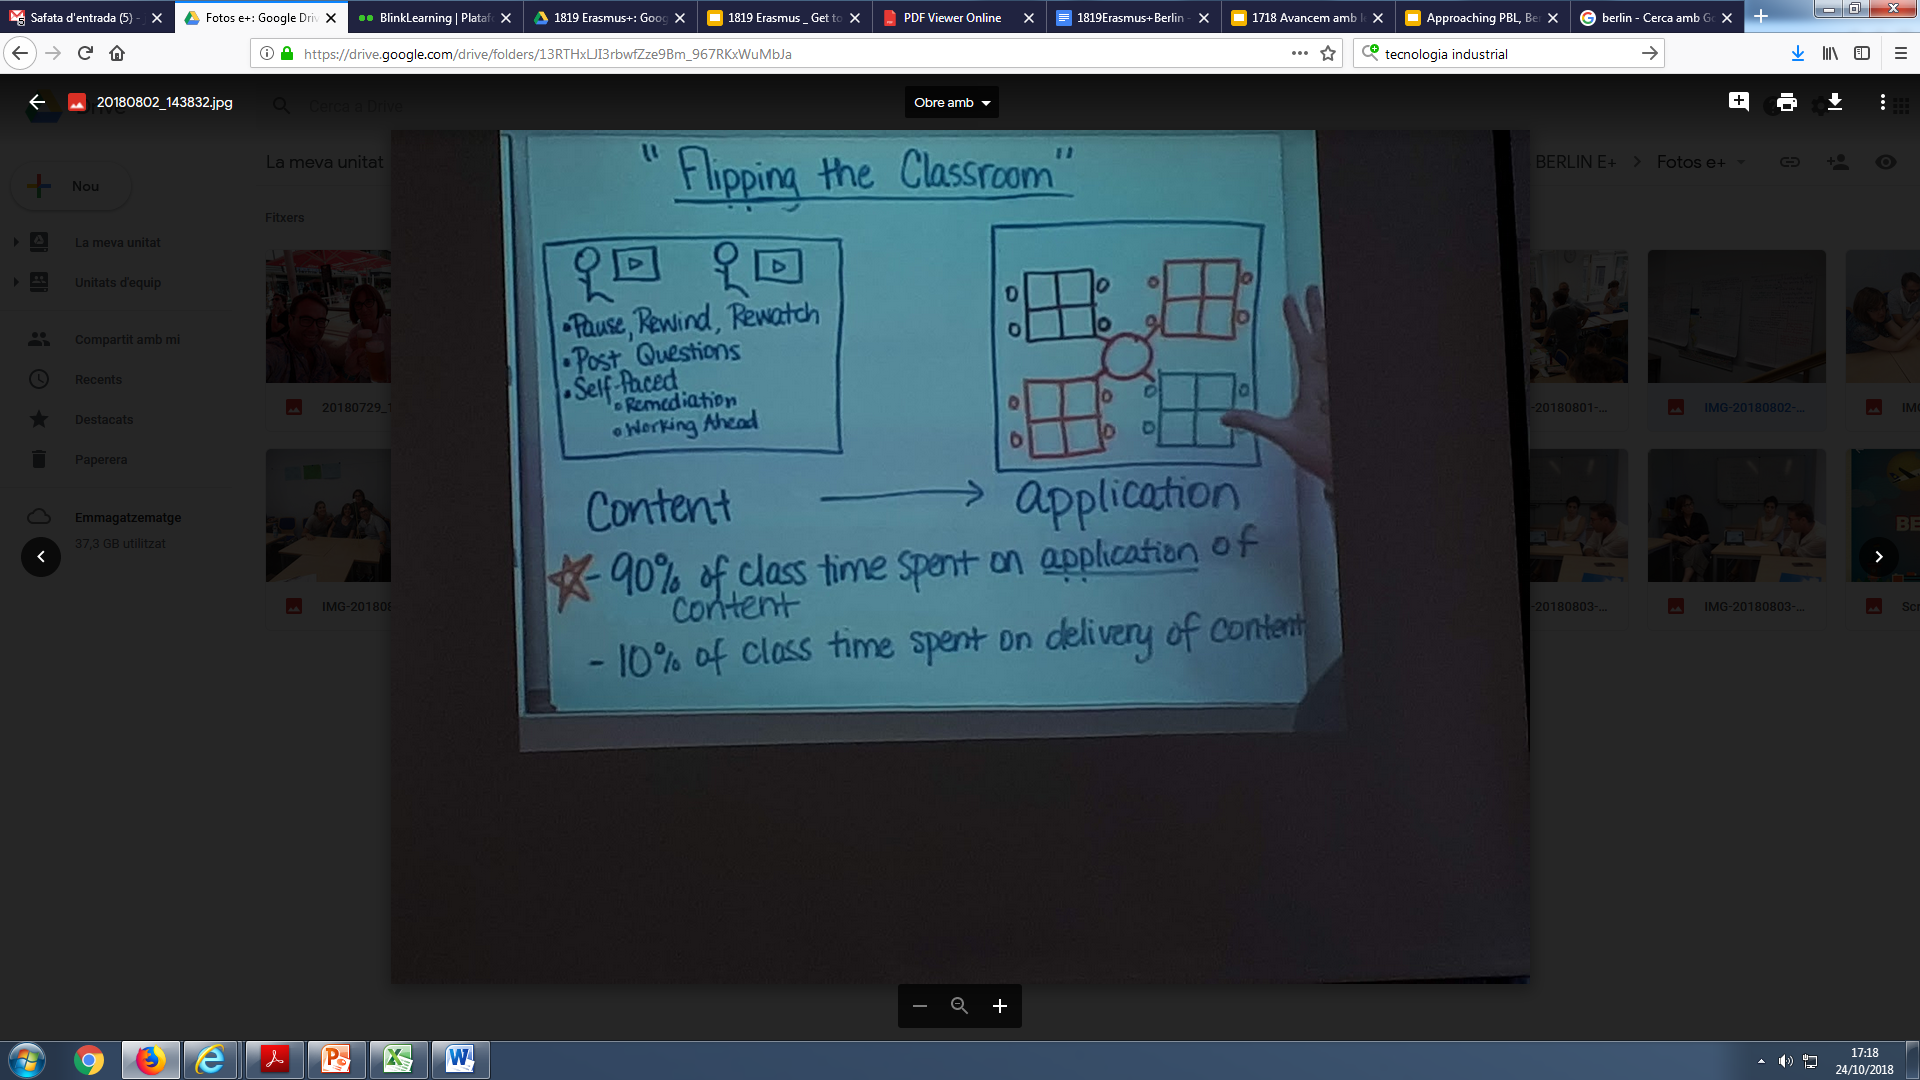 Safata d'entrada (5) -
Fotos e+: Google Driv
BlinkLearning | Plataf
1819 Erasmus+: Goog
1819 Erasmus _ Get to
PDF Viewer Online
1819Erasmus+Berlin -
1718 Avancem amb l
Approaching PBL, Be
berlin - Cerca amb Go
https://drive.google.com/drive/folders/13RTHxLJI3rbwfZze9Bm_967RKxWuMbJa
tecnologia industrial
20180802_143832.jpg
Cerca a Drive
Obre amb
Nou
La meva unitat
BERLIN E+
Fotos e+
Fitxers
La meva unitat
Unitats d'equip
Compartit amb mi
Recents
Destacats
Paperera
Emmagatzematge
37,3 GB utilitzat
20180729_1
IMG-201808
-20180801-...
IMG-20180802-...
-20180803-...
IMG-20180803-...
Scr
"Flipping the Classroom"
•Pause, Rewind, Rewatch
•Post Questions
•Self-Paced
o Remediation
o Working Ahead
Content
application
- 90% of class time spent on application of
content
- 10% of class time spent on delivery of content
17:18
24/10/2018